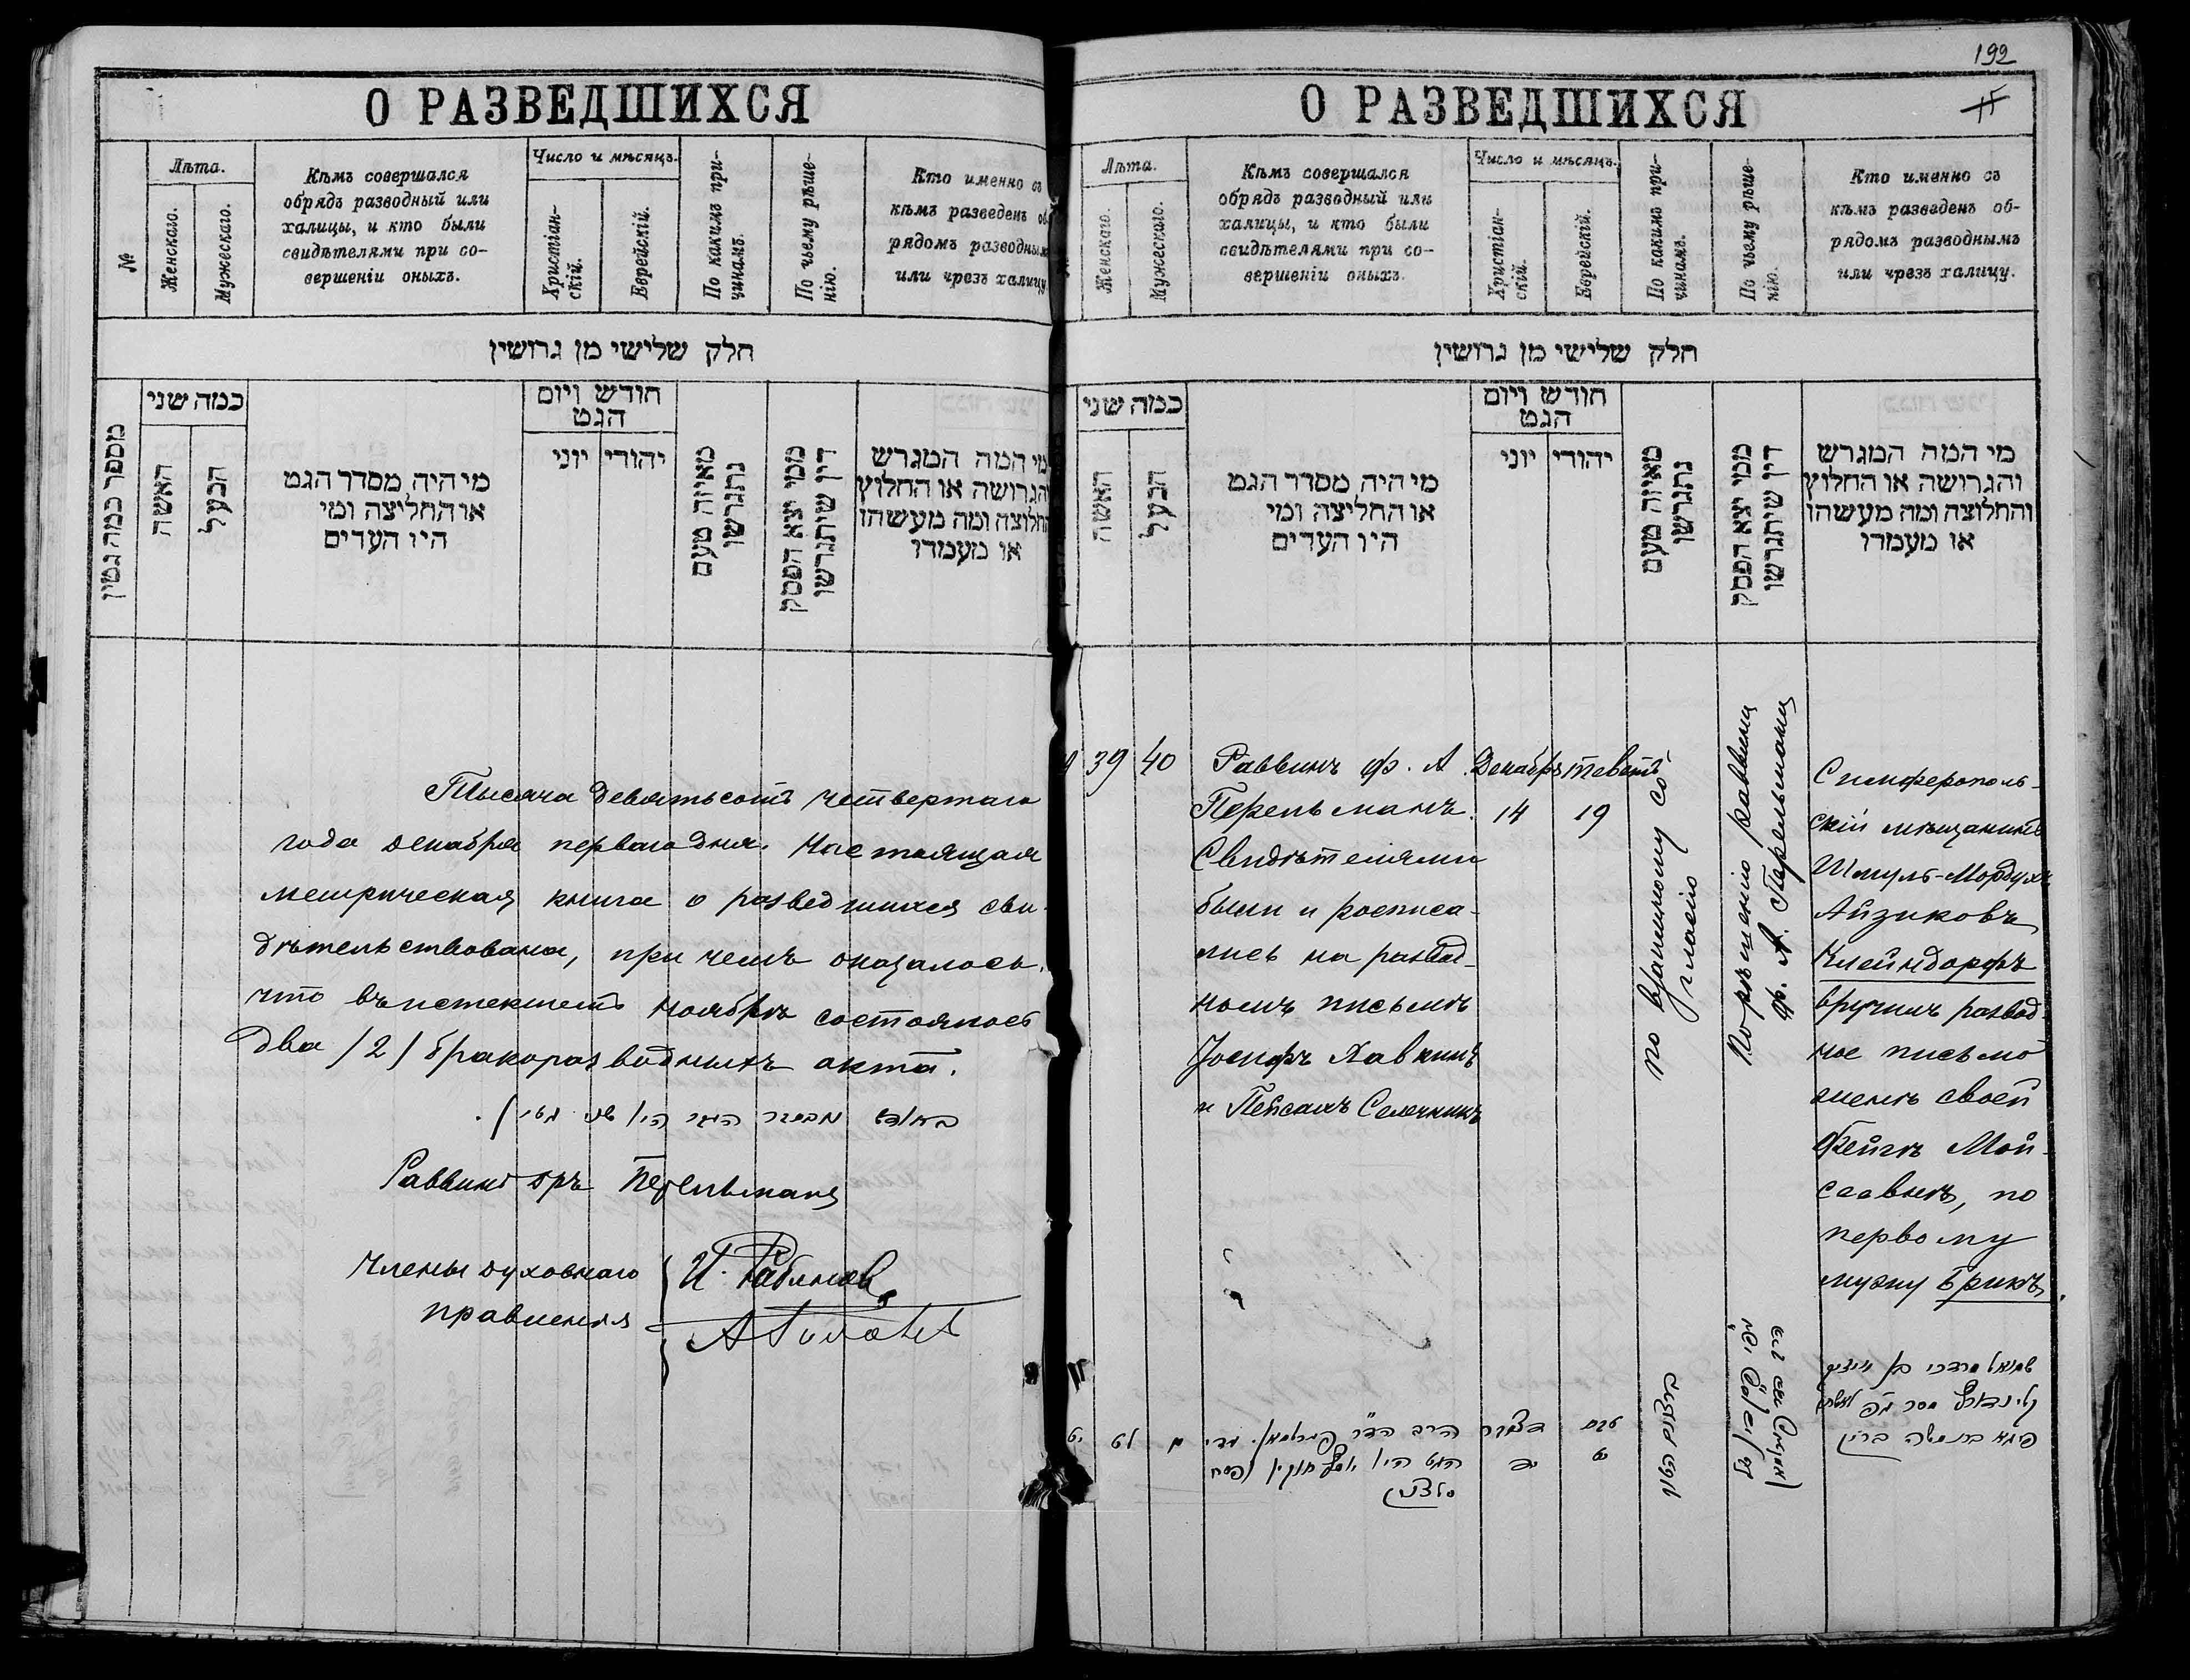 О РАЗВЕДШИХСЯ
№
Лѣта.
Женскаго.
Мужескаго.
Кѣмъ совершался
обрядъ разводный или
халицы, и кто были
свидѣтелями при со-
вершеніи оныхъ.
Число и мѣсяцъ.
Христіан-
скій.
Еврейскій.
По какимъ при-
чинамъ.
По чьему рѣше-
нію.
Кто именно съ
кѣмъ разведенъ об
рядомъ разводным
или чрезъ халицу
חלק שלישי מן גרושין
מספר כמה גטין
כמה שני
האשה
הבעל
מי היה מסדר הגט
או החליצה ומי
היו העדים
חודש ויום
הגט
יוני
יהודי
מאיזה טעם
נתגרשו
ממי יצא הפסק
דין שיתגרשו
מי המה המגרש
והגרושה או החלוץ
והחלוצה ומה מעשהו
או מעמדו
Тысяча девятьсотъ четвертаго
года декабря перваго дня. Настоящая
метрическая книга о разведшихся сви-
дѣтельствована, при чемъ оказалось,
что въ истекшемъ ноябрѣ состоялось
два /2/ бракоразводныхъ акта.
Раввинъ дръ Перельманъ
Члены духовнаго
правленія
192
О РАЗВЕДШИХСЯ
Лѣта.
Женскаго.
Мужескаго.
Кѣмъ совершался
обрядъ разводный или
халицы, и кто были
свидѣтелями при со-
вершеніи оныхъ.
Число и мѣсяцъ.
Христіан-
скій.
Еврейскій.
По какимъ при-
чинамъ.
По чьему рѣше-
нію.
Кто именно съ
кѣмъ разведенъ об-
рядомъ разводнымъ
или чрезъ халицу.
חלק שלישי מן גרושין
כמה שני
האשה
הבעל
מי היה מסדר הגט
או החליצה ומי
היו העדים
חודש ויום
הגט
יוני
יהודי
מאיזה טעם
נתגרשו
ממי יצא הפסק
דין שיתגרשו
מי המה המגרש
והגרושה או החלוץ
והחלוצה ומה מעשהו
או מעמדו
39
40
Раввинъ др. А.
Перельманъ.
Свидѣтелями
были и росписа-
лись на развод-
номъ письмѣ
Іосифъ Хавкинъ
и Пейсахъ
Декабрь
14
Теветъ
19
по взаимному со-
гласію
По рѣшенію раввина
др. А. Перельмана
Симферополь-
скій мѣщанинъ
Шмуль-Мордухъ
Айзиковъ
Клейндорфъ
вручилъ развод-
ное письмо
женѣ своей
Фейгѣ Мои-
сеевнѣ, по
первому
мужу Брикъ.